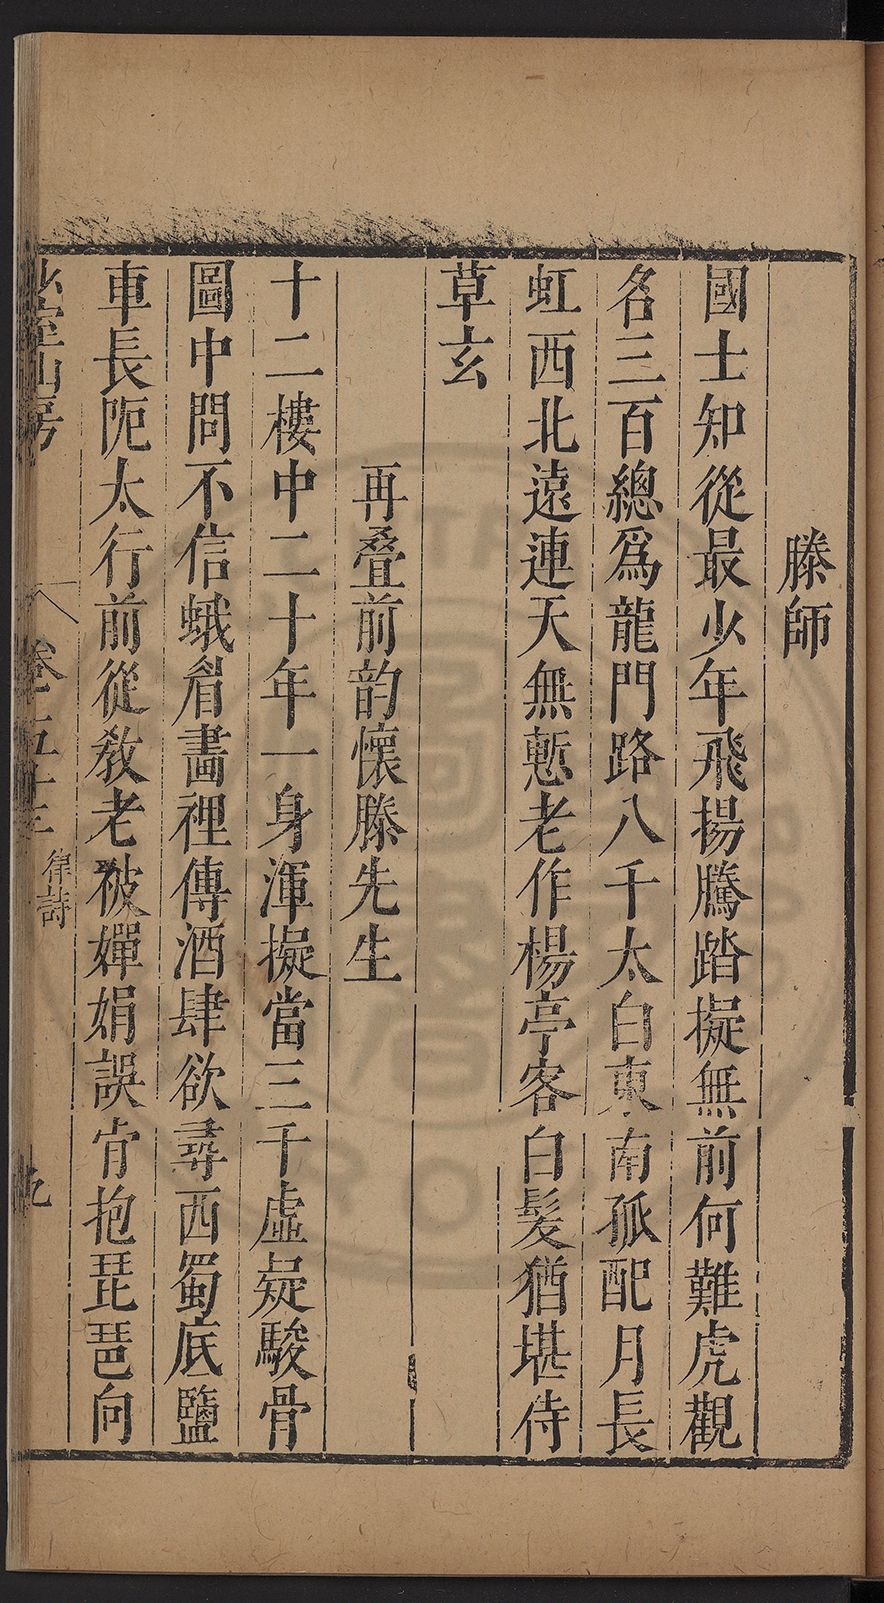 滕師
國士知從最少年飛揚騰踏擬無前何難虎觀
名三百總爲龍門路八千太白東南孤配月長
虹西北遠連天無慙老作楊亭客白髮猶堪侍
草玄
再疊前韵懷滕先生
十二樓中二十年一身渾擬當三千虛疑駿骨
圖中問不信蛾眉畵裡傳酒肆欲尋西蜀底鹽
車長阨太行前從教老被嬋娟誤肯抱琵琶向
室山房
卷五十三
律詩
九